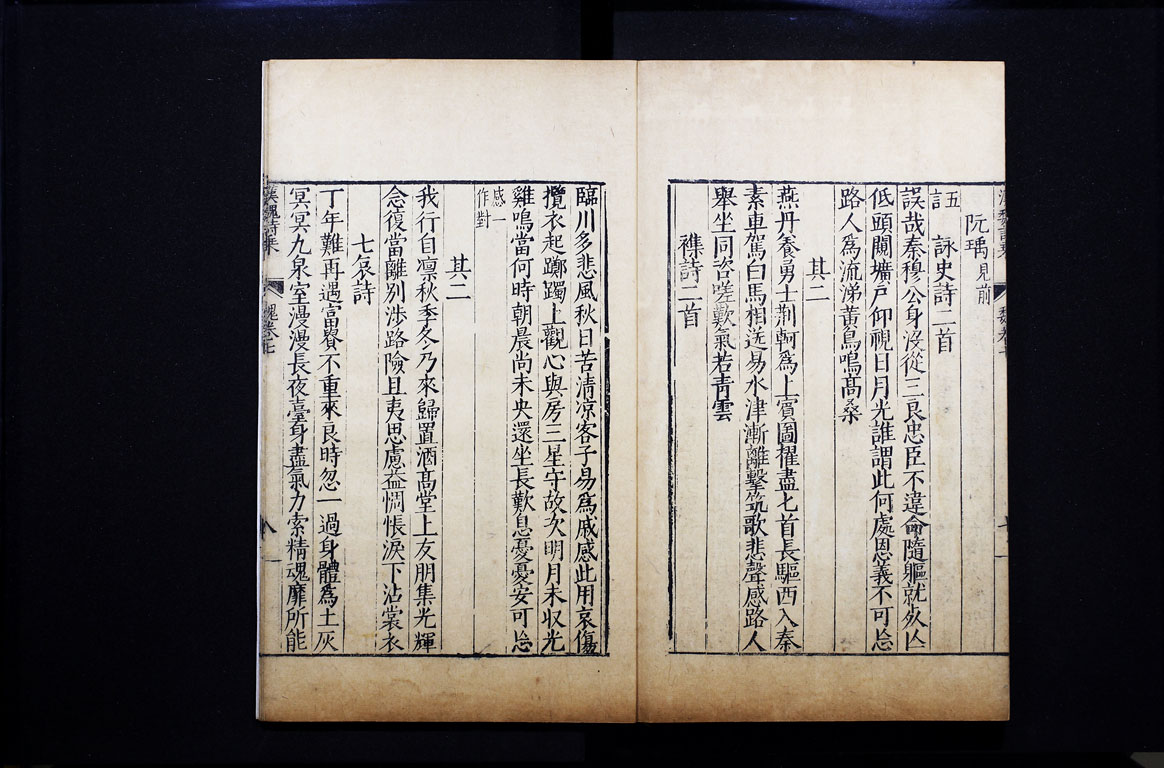 阮瑀見前
五言　詠史詩二首
誤哉秦穆公身沒從三良忠臣不違命隨軀就死亡
低頭闚壙戶仰視日月光誰謂此何處恩義不可忘
路人為流涕黃鳥鳴高桑
其二
燕丹養勇士荆軻為上賓圖擢盡匕首長驅西入秦
素車駕白馬相送易水津漸離擊筑歌悲聲感路人
舉坐同咨嗟歎氣若青雲
襍詩二首
臨川多悲風秋日苦清凉客子易為戚感此用哀傷
攬衣起躑躅上觀心與房三星守故次明月未収光
雞鳴當何時朝晨尚未央還坐長歎息憂憂安可忘
感一
作對
其二
我行自凛秋季冬乃來歸置酒高堂上友朋集光輝
念復當離別涉路險且夷思慮益惆悵淚下沾裳衣
七哀詩
丁年難再遇富貴不重來良時忽一過身體為土灰
冥冥九泉室漫漫長夜臺身盡氣力索精魂靡所能
漢魏詩乗
魏卷七
八